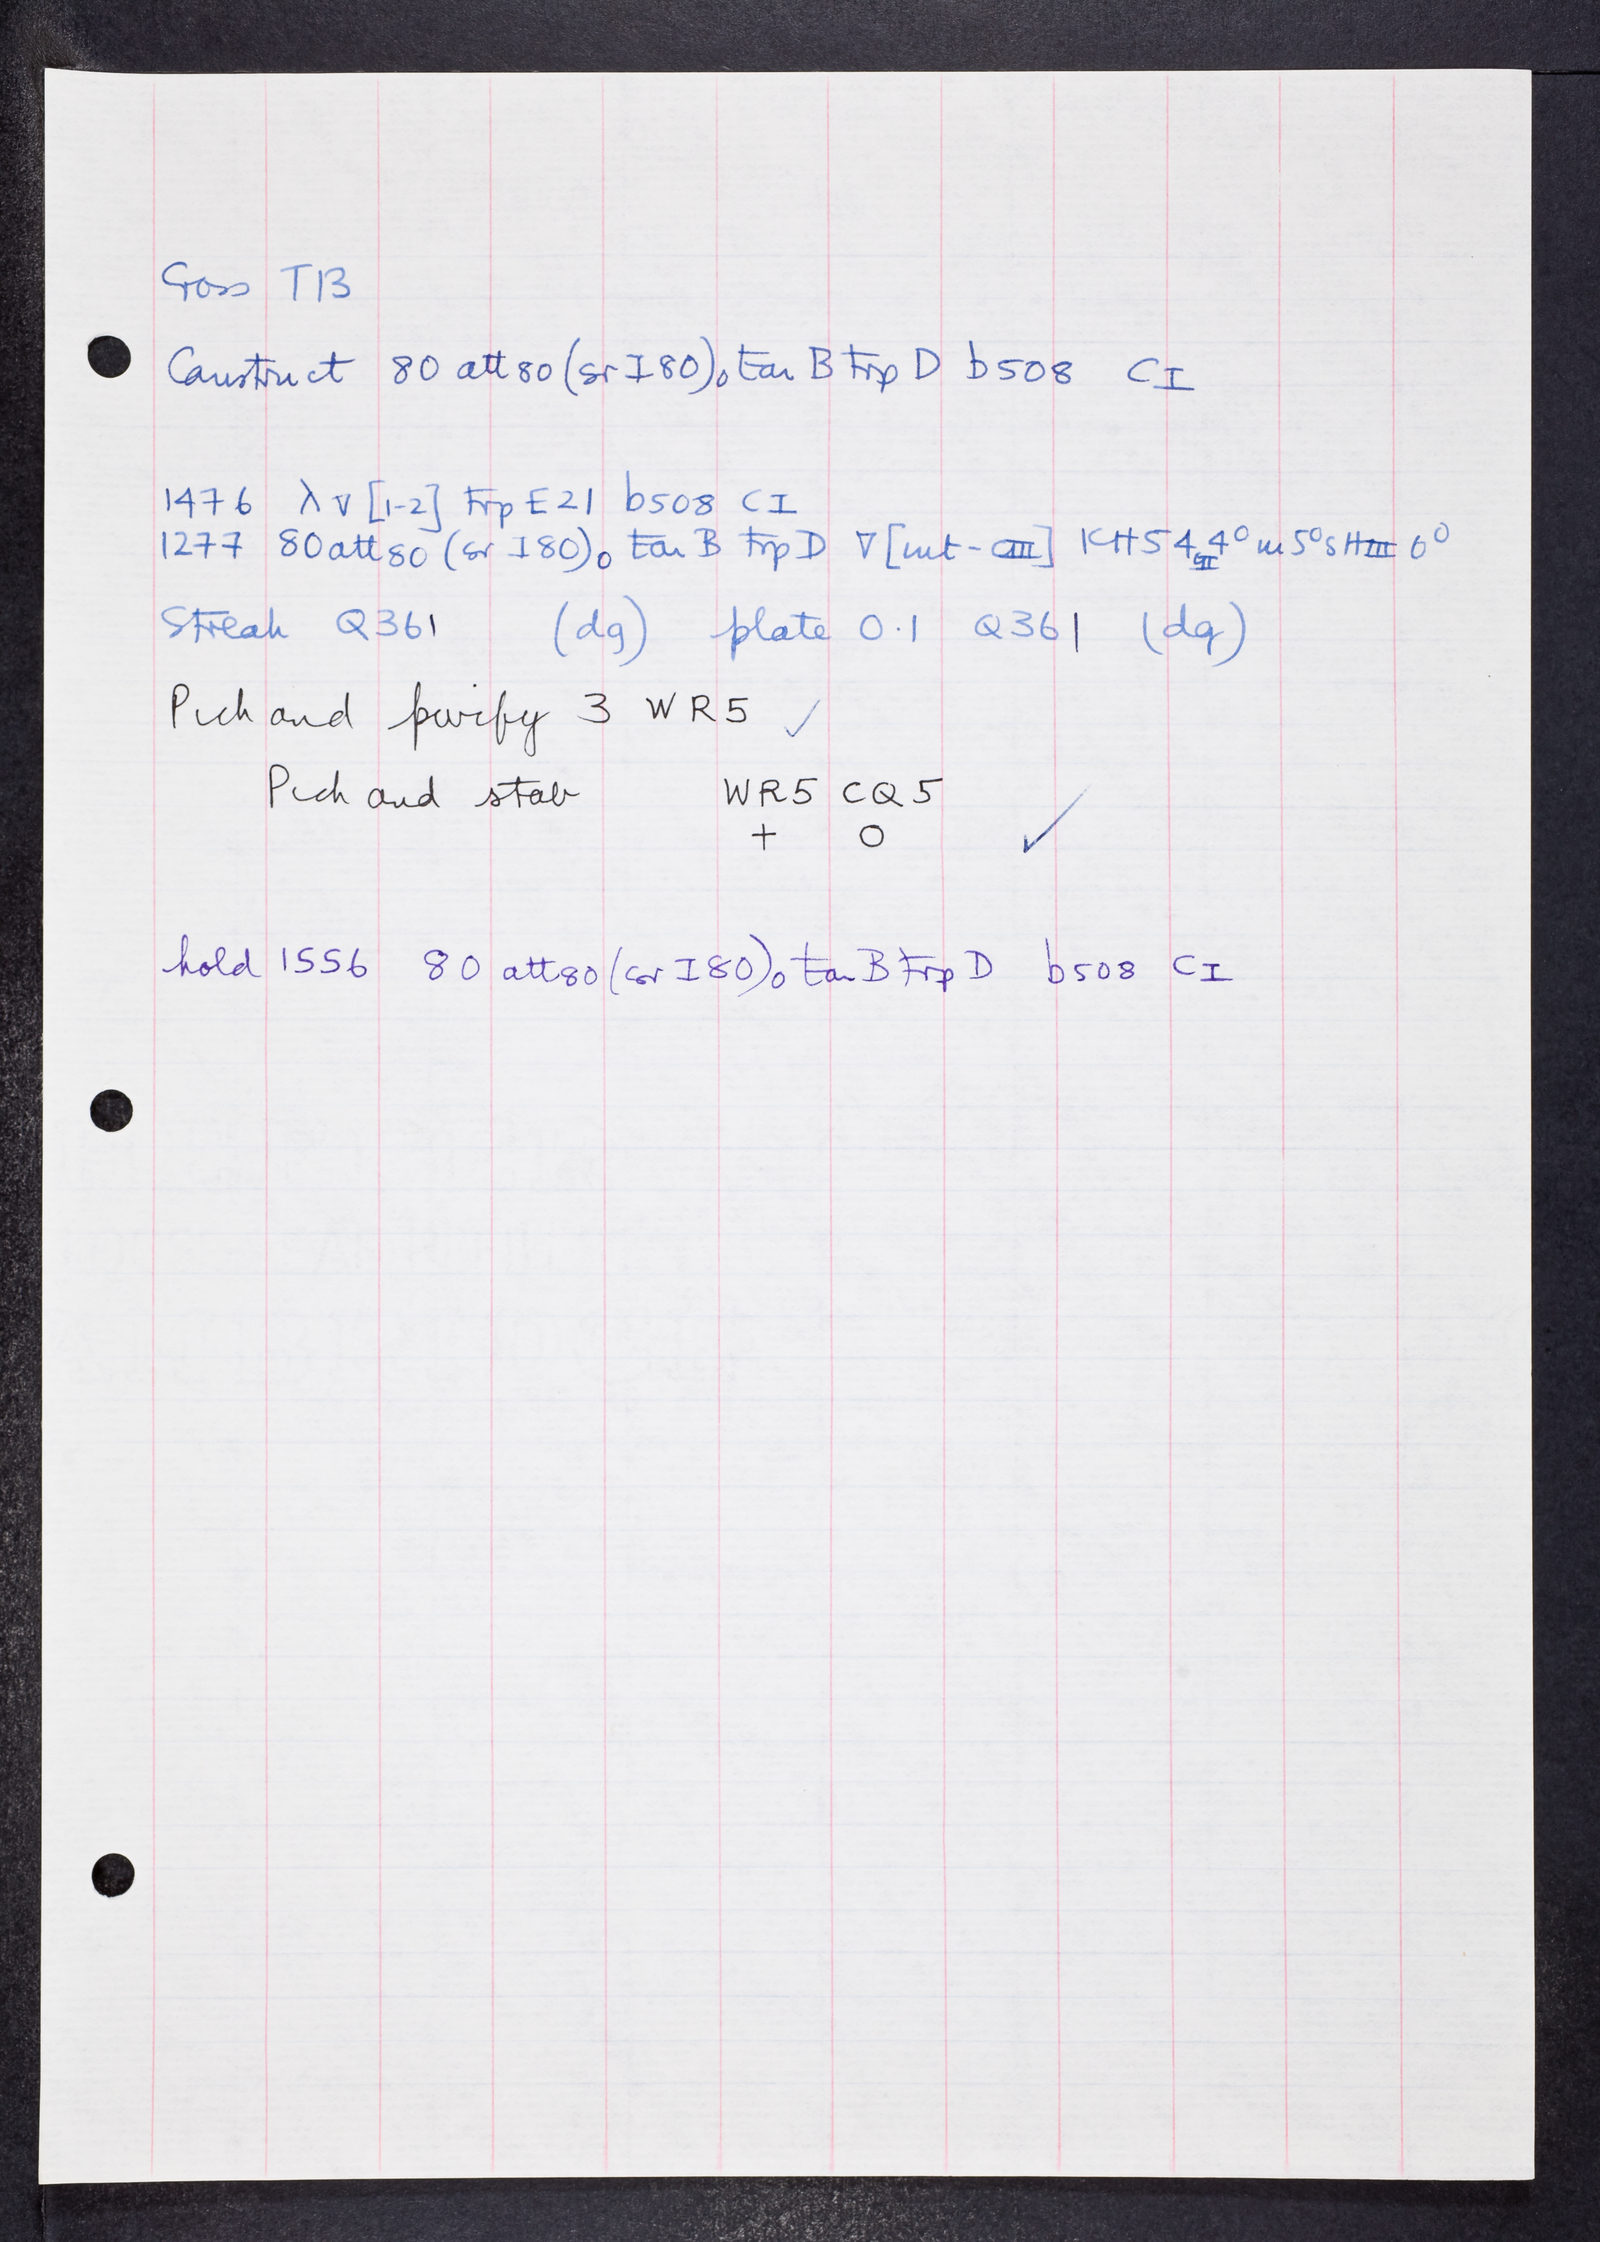 Cross T13
Construct 80 att80 (sr I 80)o ton B trp D b508 CI
1476 λ ∇ [1-2] trp E21 b508 CI
1277 80 att80 (sr I 80)o ton B trp D ∇ [int - CIII] KH54 GII 4° m 5° s HIII 6°
Streak Q361 (dg) plate 0.1 Q361 (dg)
Pick and purify 3 WR5 ✓
Pick and stab WR5 CQ5
+ O ✓
hold 1556 80 att80 (sr I 80)o ton B trp D b508 CI